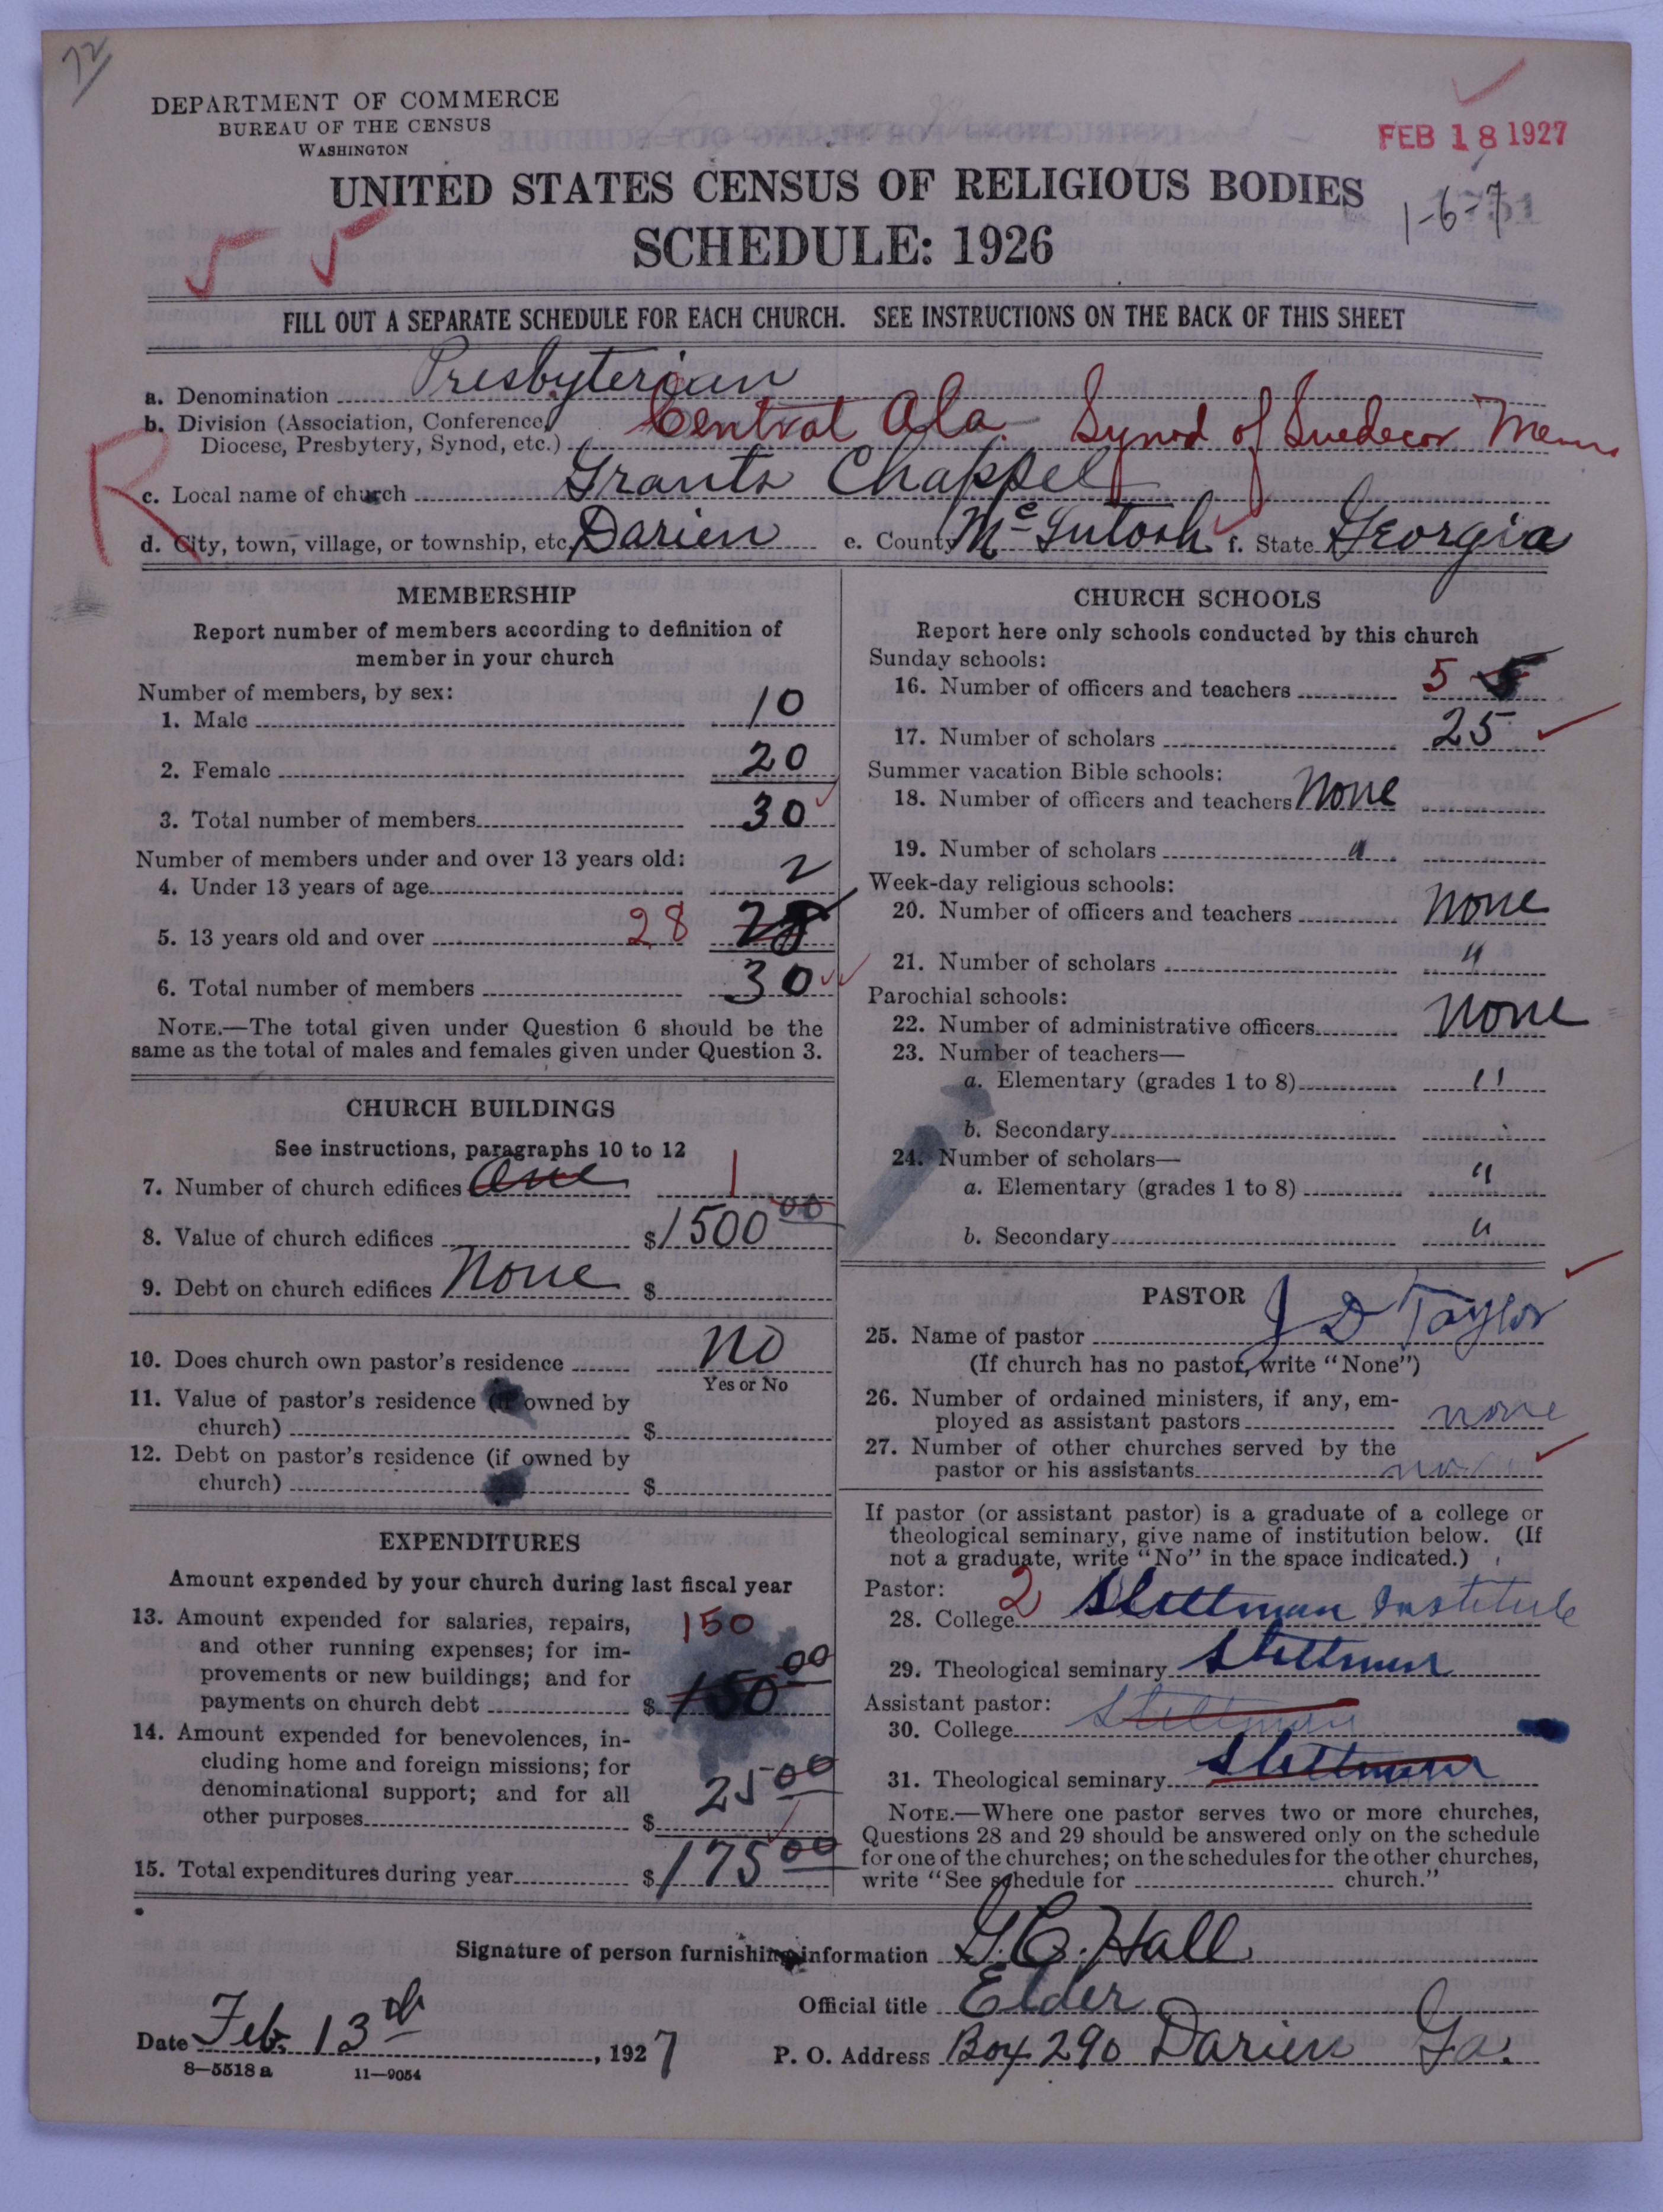 72
DEPARTMENT OF COMMERCE
BUREAU OF THE CENSUS
WASHINGTON
FEB 18 1927
UNITED STATES CENSUS OF RELIGIOUS BODIES
1-6-7
SCHEDULE: 1926
FILL OUT A SEPARATE SCHEDULE FOR EACH CHURCH. SEE INSTRUCTIONS ON THE BACK OF THIS SHEET
a. Denomination Presbyterian
b. Division (Association, Conference,
Diocese, Presbytery, Synod, etc.) Central Ala. Synod of Snedecor Mem
R
c. Local name of church Grants Chappel
d. City, town, village, or township, etc. Darien e. County McIntosh f. State Georgia
MEMBERSHIP
Report number of members according to definition of
member in your church
Number of members, by sex:
1. Male 10
2. Female 20
3. Total number of members 30
Number of members under and over 13 years old:
4. Under 13 years of age 2
5. 13 years old and over 28 28
6. Total number of members 30
NOTE.—The total given under Question 6 should be the
same as the total of males and females given under Question 3.
CHURCH BUILDINGS
See instructions, paragraphs 10 to 12
7. Number of church edifices One 1
8. Value of church edifices $1500 00
9. Debt on church edifices None $
10. Does church own pastor's residence No
Yes or No
11. Value of pastor's residence (if owned by
church) $
12. Debt on pastor's residence (if owned by
church) $
EXPENDITURES
Amount expended by your church during last fiscal year
13. Amount expended for salaries, repairs, 150
and other running expenses; for im-
provements or new buildings; and for
payments on church debt $150 00
14. Amount expended for benevolences, in-
cluding home and foreign missions; for
denominational support; and for all
other purposes $ 25 00
15. Total expenditures during year $175 00
CHURCH SCHOOLS
Report here only schools conducted by this church
Sunday schools:
16. Number of officers and teachers 5 5
17. Number of scholars 25
Summer vacation Bible schools:
18. Number of officers and teachers None
19. Number of scholars "
Week-day religious schools:
20. Number of officers and teachers None
21. Number of scholars "
Parochial schools:
22. Number of administrative officers None
23. Number of teachers—
a. Elementary (grades 1 to 8) "
b. Secondary
24. Number of scholars—
a. Elementary (grades 1 to 8) "
b. Secondary "
PASTOR
25. Name of pastor J D Taylor
(If church has no pastor, write "None")
26. Number of ordained ministers, if any, em-
ployed as assistant pastors none
27. Number of other churches served by the
pastor or his assistants no
If pastor (or assistant pastor) is a graduate of a college or
theological seminary, give name of institution below. (If
not a graduate, write "No" in the space indicated.)
Pastor:
28. College 2 Stillman Institute
29. Theological seminary Stillman
Assistant pastor:
30. College Stillman
31. Theological seminary Stillman
NOTE.—Where one pastor serves two or more churches,
Questions 28 and 29 should be answered only on the schedule
for one of the churches; on the schedules for the other churches,
write "See schedule for church."
Signature of person furnishing information G. C. Hall
Official title Elder
Date Feb. 13th, 1927 P. O. Address Box 290 Darien Ga.
8—5518 a 11—9054